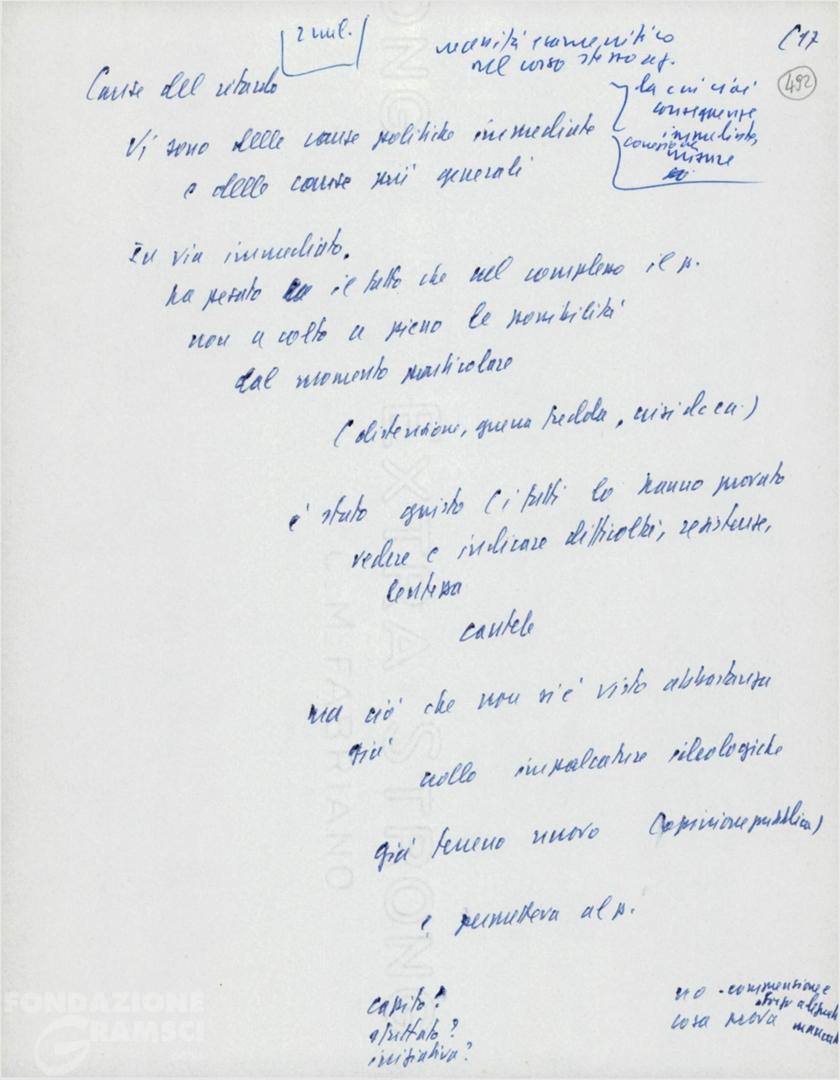 2 mil.
necessità
nel corso stesso
C17
492
Cause del ritardo
la cui
conseguenze
immediate,
misure
Vi sono delle cause politiche immediate
e delle cause più generali
In via immediata.
ha pesato il fatto che nel complesso il p.
non a colto a pieno le possibilità
dal momento particolare
(distensione, guerra fredda, crisi dc ecc.)
è stato giusto (i fatti lo hanno provato
vedere e indicare difficoltà, resistenze,
lentezza
cautele
ma ciò che non si è visto abbastanza
già
crollo impalcature ideologiche
già terreno nuovo (opinione pubblica)
e permetteva al p.
capito?
sfruttato?
iniziativa?
no
cosa nuova
EXTRA STRONG
C.M.FABRIANO
FONDAZIONE
GRAMSCI